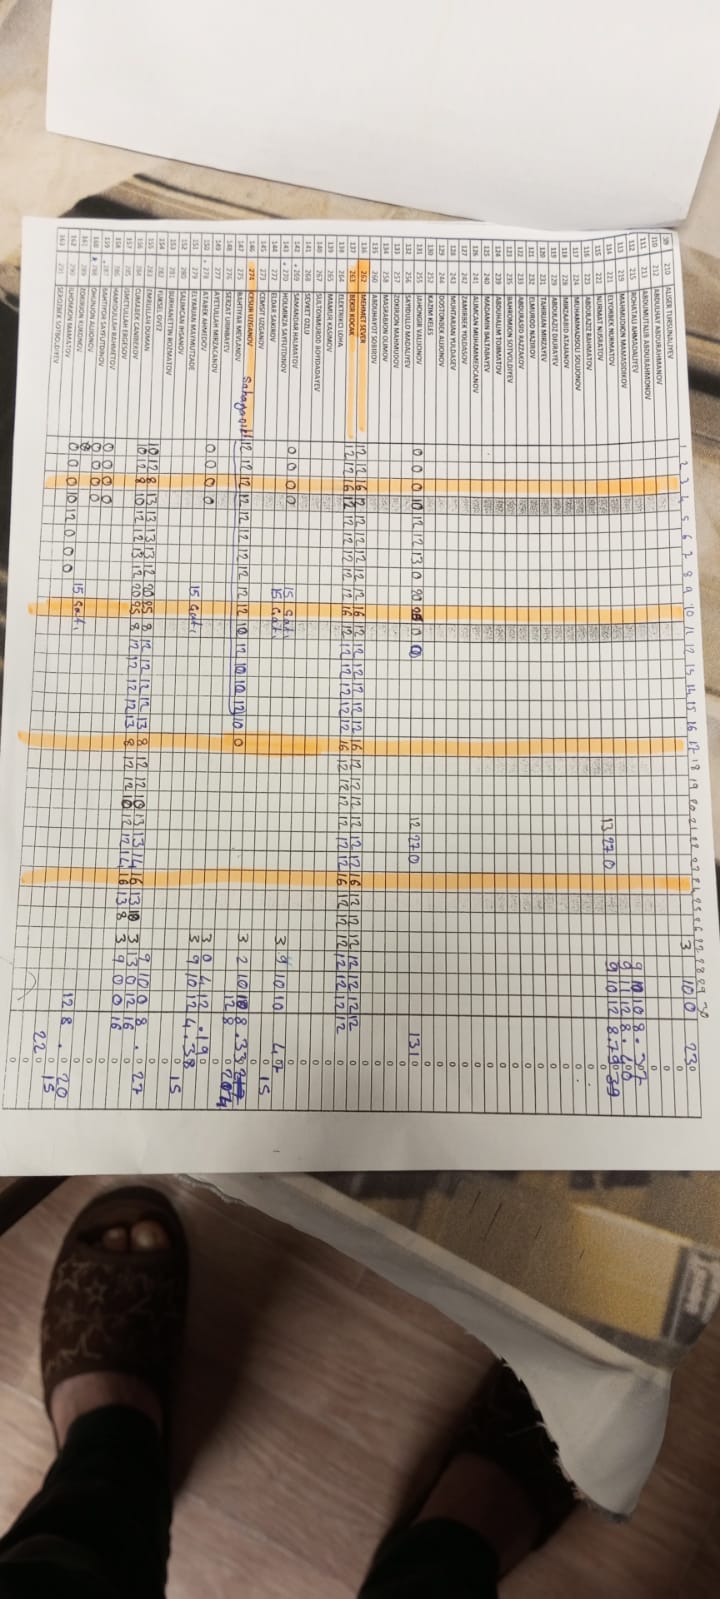 1 2 3 4 5 6 7 8 9 10 11 12 13 14 15 16 17 18 19 20 21 22 23 24 25 26 27 28 29 30
109 210 ALISER TURSUNALIYEV 3 10 0 230
110 212 ABDULHAY ABDURAHMANOV 0
111 213 ABDUMUTALIB ABDURAHMONOV 0
112 215 ROHATALI AHMADALIYEV 0
113 219 MAHMUDJON MAMASIDIKOV 9 10 10 8 . 37
114 221 ELYORBEK NURMATOV 9 11 12 8 . 40
115 222 NURMAT NUSRATOV 13 27 0 9 10 12 8 . 79 39
116 223 ABDULAZIZ RAHMATOV 0
117 224 MUHAMMADSOLI SOLIJONOV 0
118 228 MIRZAABID ATAJANOV 0
119 229 ABDULAZIZ DJURAYEV 0
120 231 TAHIRJAN MIRZAYEV 0
121 232 ELMUROD NAZIROV 0
122 233 ABDURASID RAZZAKOV 0
123 235 BAHROMJON SOTVOLDIYEV 0
124 239 ABDUHALIM TORMATOV 0
125 240 MADAMIN BALTABAYEV 0
126 241 ALIMCAN MUHAMMEDCANOV 0
127 242 ZAMIRBEK YOLDASOV 0
128 243 MUHTARJAN YULDASEV 0
129 244 DOSTONBEK ALIJONOV 0
130 252 KAZIM KELES 0
131 255 JAHONGIR VALIJONOV 0 0 0 10 12 12 13 0 20 0 0 12 27 0 131 0
132 256 SAYIDULLO MADALIYEV 0
133 257 ZOKIRJON MAHMUDOV 0
134 258 MASRABJON OLIMOV 0
135 260 ABDUHAYOT SOBIROV 0
136 262 MEHMET SEVER 12 12 16 12 12 12 12 12 12 16 12 12 12 12 12 12 16 12 12 12 12 12 12 16 12 12 12 12 12 12 12
137 263 BEKIR KOCAK 12 12 16 12 12 12 12 12 12 16 12 12 12 12 12 12 16 12 12 12 12 12 12 16 12 12 12 12 12 12 12
138 264 ELEKTRIKCI LOHA 0
139 265 MAMUR KASIMOV 0
140 267 SULTONMUROD BOYIDADAYEV 0
141 268 SEVKET OZLU 0
142 269 SAMANDAR HALMATOV 0 0 0 0
143 270 HOLMIRZA SAYFUTDINOV 15 Gat. 3 9 10 10 40
144 272 ELDAR SAKIROV 15 Gat. 15
145 273 CEMSIT UZGANOV 0
146 274 CESUR UZGANOV
147 275 BAHTIYAR MEVLANOV 12 12 12 12 12 12 12 12 12 12 10 12 10 10 12 10 0 3 2 10 10 8 . 33 217
148 276 SERZAT URINBAYEV 12 8 204
149 277 AYETULLAH MIRZACANOV 0 0 0 0
150 278 ATABEK AHMEDOV 3 0 4 12 . 19
151 279 ELYARJAN MAYMUTZADE 15 Gat. 3 9 10 12 4 . 38
152 280 SALIMCAN IHSANOV 15
153 281 BURHANETTIN ROZMATOV 0
154 282 YUKSEL OVEZ
155 283 EMRULLAH DUMAN 10 12 8 13 13 13 13 12 20 25 8 12 12 12 12 13 8 12 12 10 13 13 14 16 13 10 9 10 0 8 . 27
156 284 CUMABEK CANIBEKOV 10 12 8 10 12 12 13 12 20 25 8 12 12 12 12 13 8 12 12 10 12 12 14 16 13 8 3 13 0 12 16
157 285 ISMETULLAH ERGESOV 3 9 0 0 16
158 286 HAMIDULLAH RAHMETOV 0
159 287 BAHTIYOR SAYFUTDINOV 0 0 0 0
160 288 OHUNJON ALIJONOV 0 0 0 0
161 289 ZOKIRJON KUKONOV
162 290 ILHOMJON MAMATOV 0 0 0 10 12 0 0 0 15 Gat. 12 8 . 20
163 291 SEROZBEK SOTBOLDIYEV 15
22 0